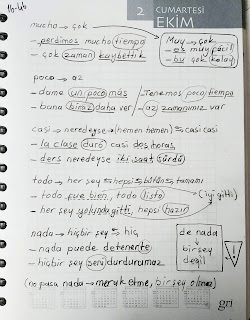 16-66
2 CUMARTESİ
EKİM
mucho → çok
- perdimos mucho tiempo
- çok zaman kaybettik
Muy → çok
- es muy fácil
- bu çok kolay
poco → az
- dame un poco más
- bana biraz daha ver
- Tenemos poco tiempo
- az zamanımız var
casi → neredeyse → hemen hemen casi casi
- la clase duró casi dos horas,
- ders neredeyse iki saat sürdü
todo → her şey hepsi bütün, tamamı
- todo fue bien, todo listo
- her şey yolunda gitti, hepsi hazır
(iyi gitti)
nada → hiçbir şey hiç
- nada puede detenerte
- hiçbir şey seni durduramaz
de nada
↓
birşey
değil
!
(no pasa nada → merak etme, bir şey olmaz)
gri